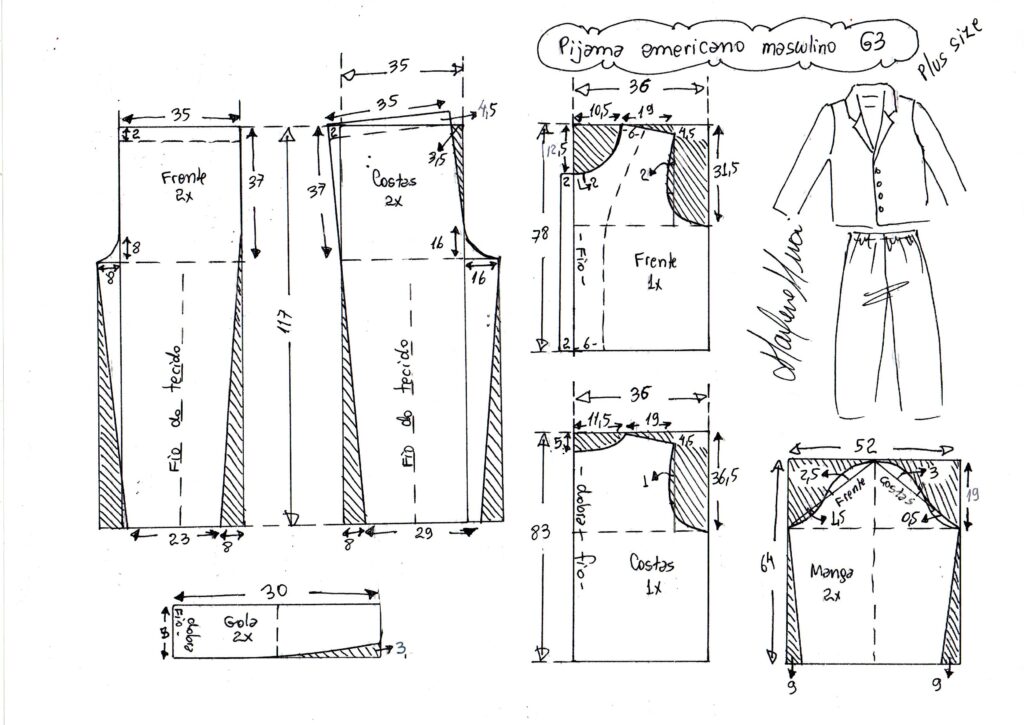 Pijama americano masculino G3
Plus size
35
2
37
Frente
2x
8
8
Fio do tecido
23
8
117
35
35
4,5
2
3,5
37
Costas
2x
16
16
Fio do tecido
8
29
30
8
Fio -
dobra
Gola
2x
3
36
10,5
19
12,5
-6-
4,5
2
2
2
31,5
78
- Fio -
Frente
1x
2
6-
36
11,5
19
5
4,5
1
36,5
83
- dobra + fio -
Costas
1x
52
2,5
3
Frente
Costas
19
1,5
0,5
64
Manga
2x
9
9